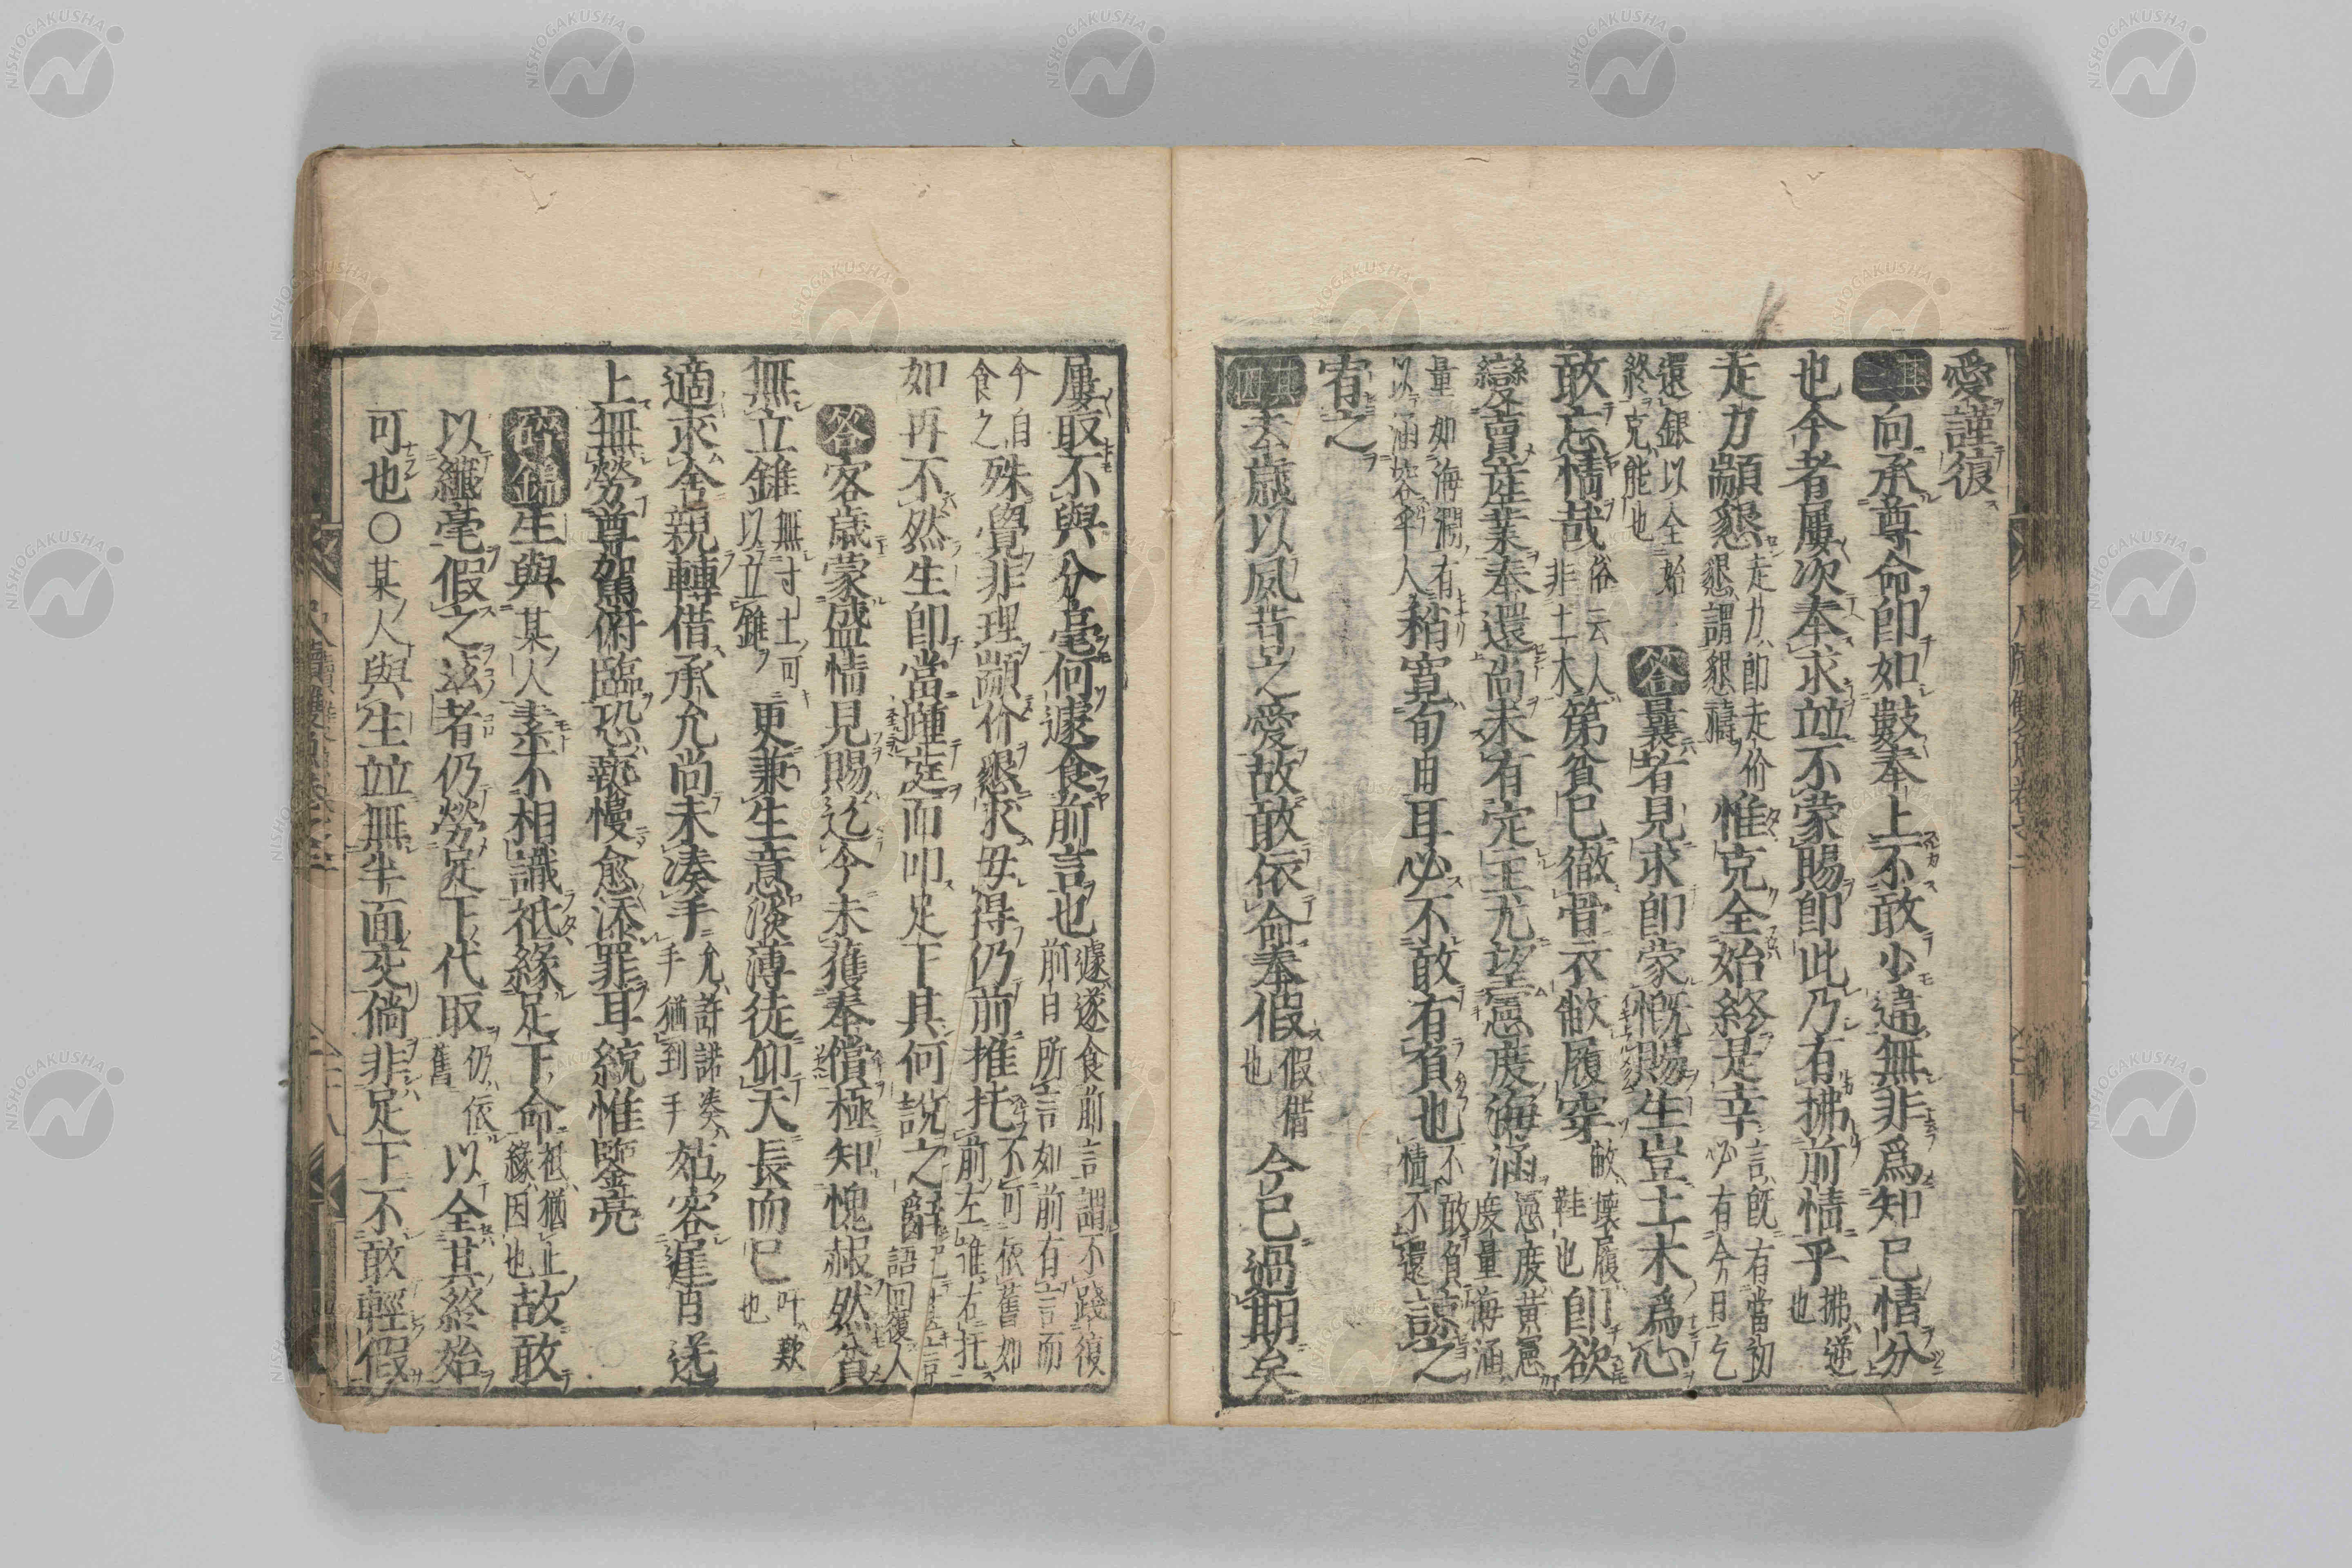 愛謹復
其三 向承尊命即如數奉上不敢少違無非爲知已情分
也今者屢次奉求並不蒙賜即此乃有拂前情乎 拂逆也
走力顓懇 走力即走价懇謂懇禱 惟克全始終是幸 言既有當初必有今日乞
還銀以全始終克能也 答 曩者見求即蒙慨賜生豈土木爲心
敢忘情哉 俗云人非土木 第貧已徹骨衣敝履穿 敝壞履鞋也 即欲
變賣産業奉還尚未有定主尤望憲度海涵 憲度黄憲度量海涵
量如海濶有以涵容乎人 稍寛旬日耳必不敢有負也 不敢負情不還 諒之
宥之
其四 去歲以夙昔之愛故敢依命奉假 假借也 今已過期矣
屢取不與分毫何遽食前言也 遽遂食前言謂不踐復前日所言如前有言而
今自食之 殊覺非理顓价懇求毋得仍前推托 不可依舊如前左推右托
如再不然生即當踵庭而叩足下其何說之辭 語回復人
答 客歲蒙盛情見賜迄今未獲奉償極知愧赧然貧
無立錐 無寸土可以立錐 更兼生意淡薄徒仰天長而已 吁歎也
適求舍親轉借承允尚未湊手 允許諾湊手猶到手 姑容遲肖送
上無勞尊駕俯臨恐褻慢愈添罪耳統惟鑒亮
碎錦 生與某人素不相識祇緣足下命 祇猶止緣因也 故敢
以纖毫假之玆者仍勞足下代取 仍依舊 以全其終始
可也○某人與生並無半面交倘非足下不敢輕假